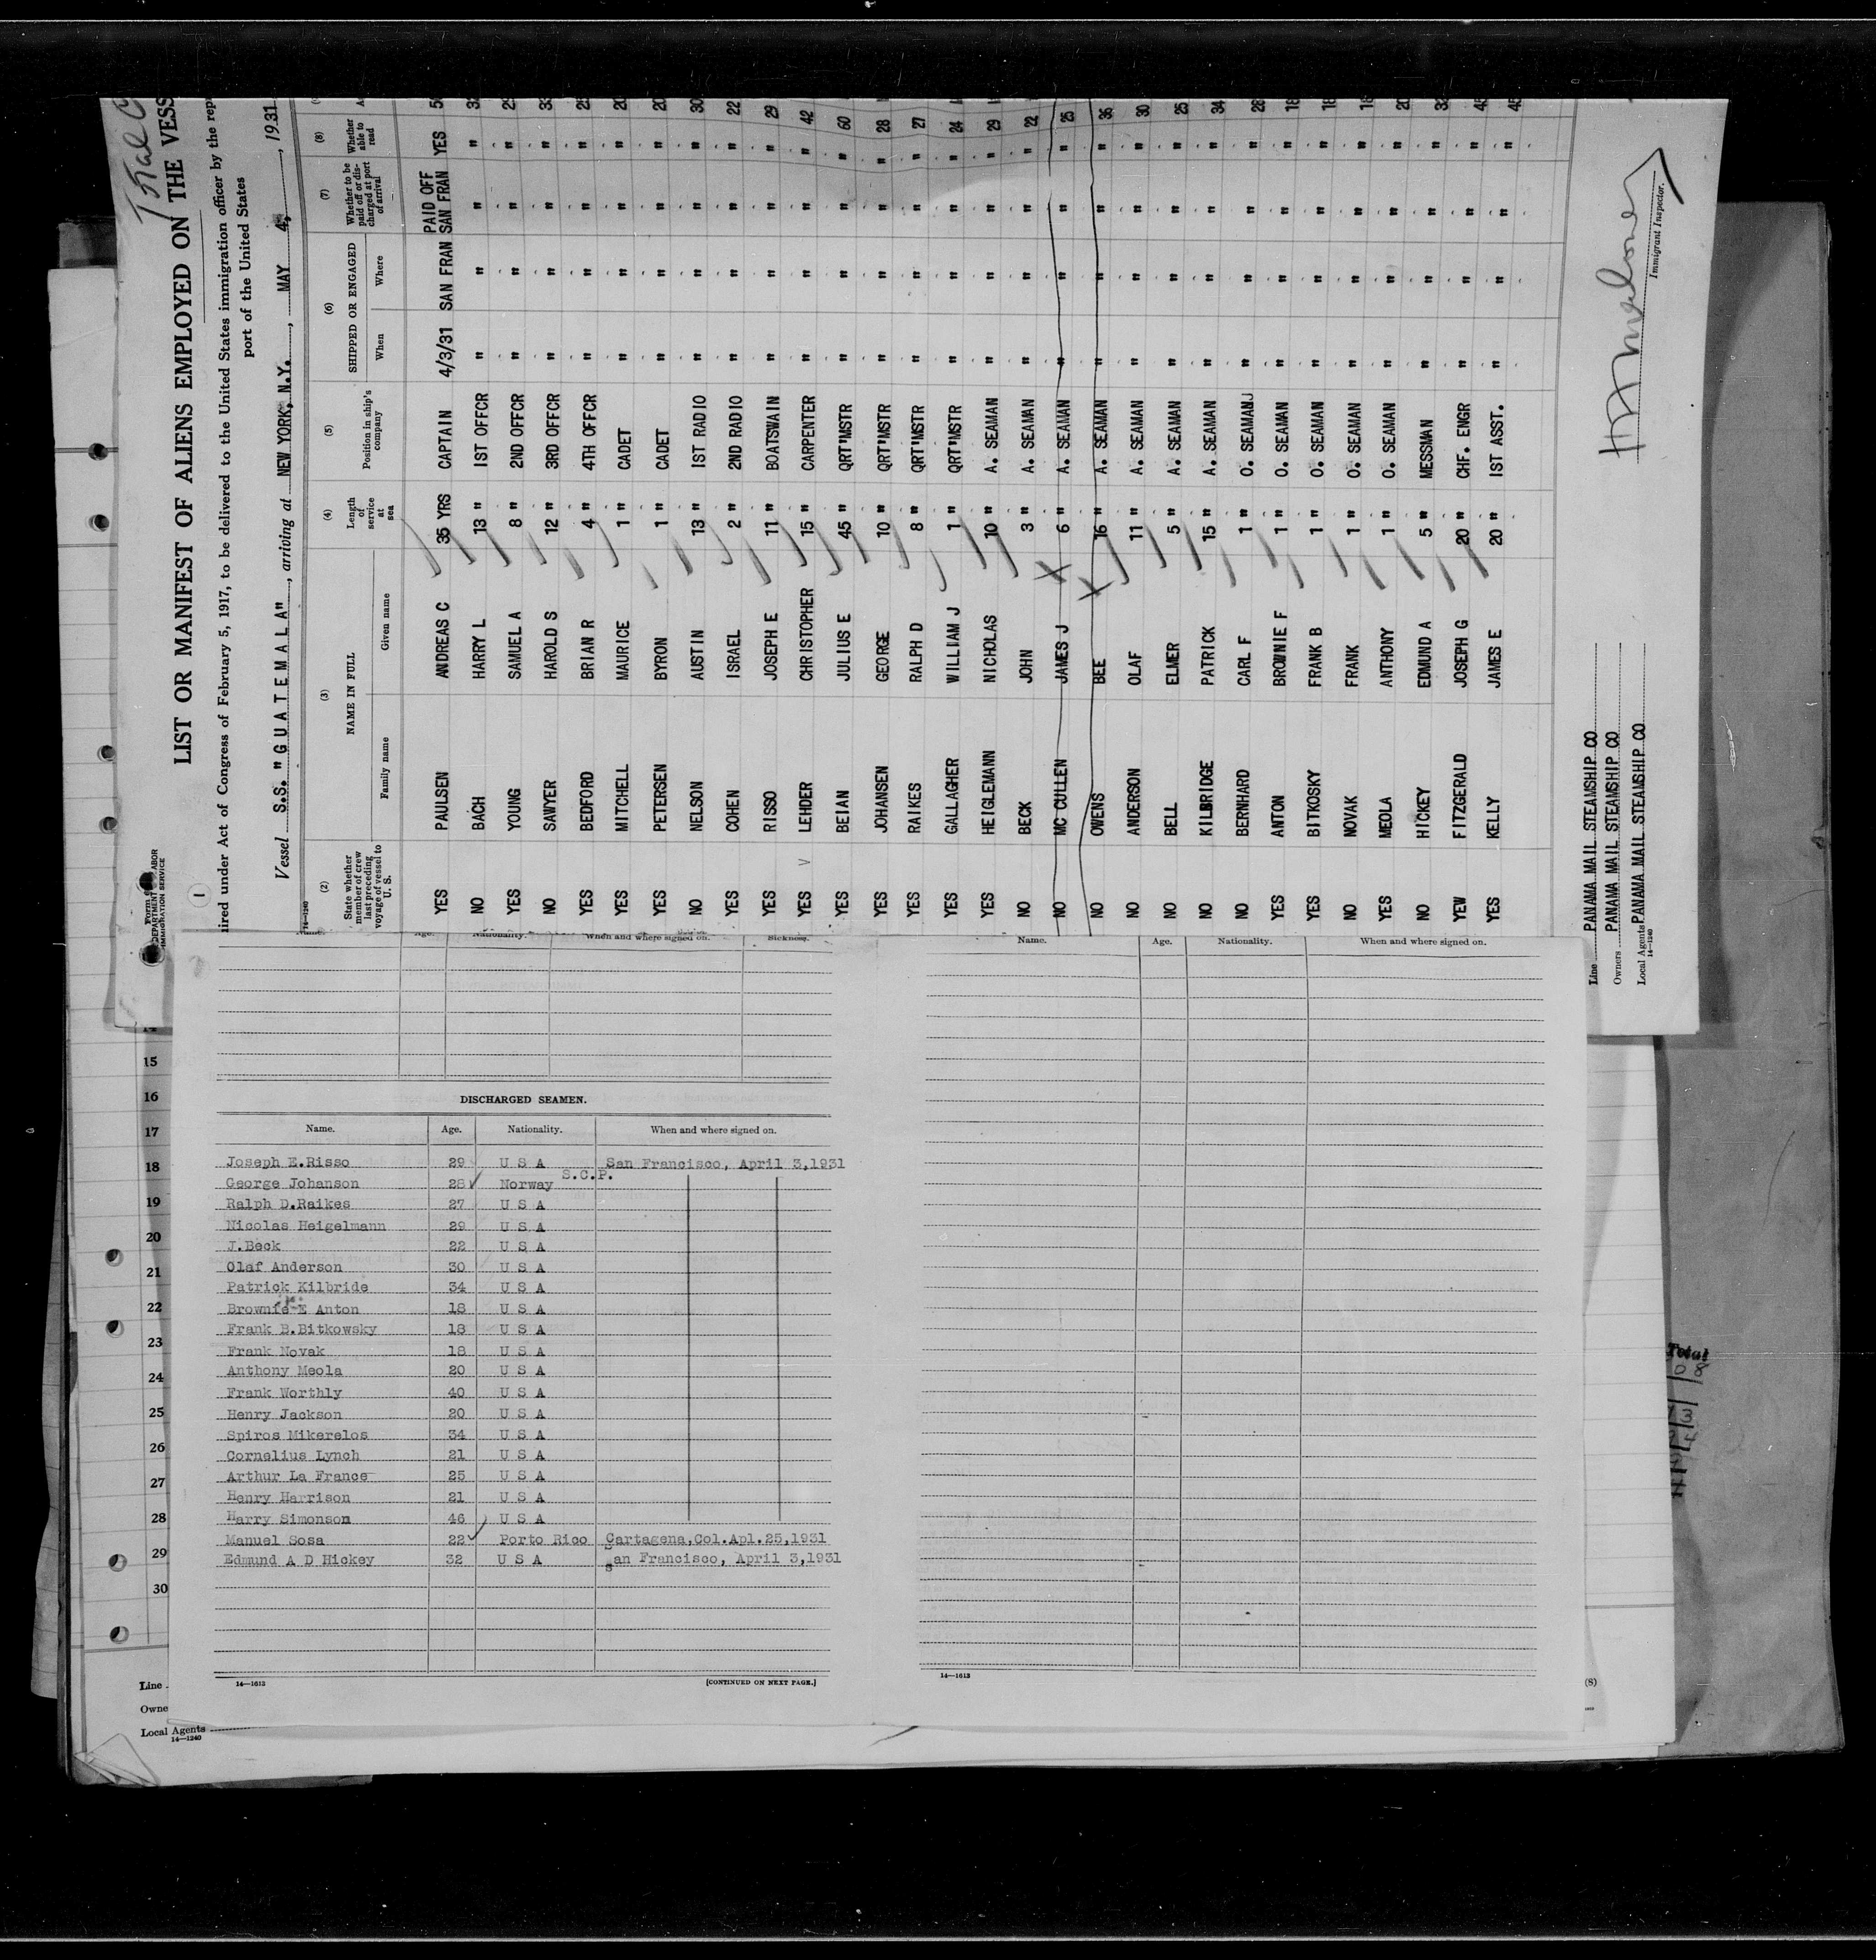 Total C
LIST OR MANIFEST OF ALIENS EMPLOYED ON THE VESS
ired under Act of Congress of February 5, 1917, to be delivered to the United States immigration officer by the repr
port of the United States
Vessel S.S. "GUATEMALA", arriving at NEW YORK, N.Y., MAY 4, 1931
1
14—1240
(2) State whether member of crew last preceding voyage of vessel to U. S.
(3) NAME IN FULL
Family name Given name
(4) Length of service at sea
(5) Position in ship's company
(6) SHIPPED OR ENGAGED
When Where
(7) Whether to be paid off or discharged at port of arrival
(8) Whether able to read
YES PAULSEN ANDREAS C 35 YRS CAPTAIN 4/3/31 SAN FRAN PAID OFF SAN FRAN YES
NO BACH HARRY L 13 " 1ST OFFCR " " " "
YES YOUNG SAMUEL A 8 " 2ND OFFCR " " " "
NO SAWYER HAROLD S 12 " 3RD OFFCR " " " "
YES BEDFORD BRIAN R 4 " 4TH OFFCR " " " "
YES MITCHELL MAURICE 1 " CADET " " " "
YES PETERSEN BYRON 1 " CADET " " " "
NO NELSON AUSTIN 13 " 1ST RADIO " " " " 30
YES COHEN ISRAEL 2 " 2ND RADIO " " " " 22
YES RISSO JOSEPH E 11 " BOATSWAIN " " " " 29
YES LEHDER CHRISTOPHER 15 " CARPENTER " " " " 42
YES BEIAN JULIUS E 45 " QRT'MSTR " " " " 60
YES JOHANSEN GEORGE 10 " QRT'MSTR " " " " 28
YES RAIKES RALPH D 8 " QRT'MSTR " " " " 27
YES GALLAGHER WILLIAM J 1 " QRT'MSTR " " " " 24
YES HEIGLEMANN NICHOLAS 10 " A. SEAMAN " " " " 29
NO BECK JOHN 3 " A. SEAMAN " " " " 22
NO MC CULLEN JAMES J 6 " A. SEAMAN " " " " 25
NO OWENS BEE 16 " A. SEAMAN " " " " 36
NO ANDERSON OLAF 11 " A. SEAMAN " " " " 30
NO BELL ELMER 5 " A. SEAMAN " " " " 25
NO KILBRIDGE PATRICK 15 " A. SEAMAN " " " " 34
NO BERNHARD CARL F 1 " O. SEAMAN " " " " 28
YES ANTON BROWNIE F 1 " O. SEAMAN " " " " 18
YES BITKOSKY FRANK B 1 " O. SEAMAN " " " " 18
NO NOVAK FRANK 1 " O. SEAMAN " " " " 18
YES MEOLA ANTHONY 1 " O. SEAMAN " " " " 20
NO HICKEY EDMUND A 5 " MESSMAN " " " "
YEW FITZGERALD JOSEPH G 20 " CHF. ENGR " " " "
YES KELLY JAMES E 20 " 1ST ASST. " " " "
Line PANAMA MAIL STEAMSHIP CO
Owners PANAMA MAIL STEAMSHIP CO
Local Agents PANAMA MAIL STEAMSHIP CO
14—1240
Immigrant Inspector.
Name. Age. Nationality. When and where signed on. Sickness.
DISCHARGED SEAMEN.
Name. Age. Nationality. When and where signed on.
Joseph E.Risso 29 U S A San Francisco, April 3,1931
George Johanson 28 Norway S.C.P.
Ralph D.Raikes 27 U S A
Nicolas Heigelmann 29 U S A
J.Beck 22 U S A
Olaf Anderson 30 U S A
Patrick Kilbride 34 U S A
Brownie E Anton 18 U S A
Frank B.Bitkowsky 18 U S A
Frank Novak 18 U S A
Anthony Meola 20 U S A
Frank Worthly 40 U S A
Henry Jackson 20 U S A
Spiros Mikerelos 34 U S A
Cornelius Lynch 21 U S A
Arthur La France 25 U S A
Henry Harrison 21 U S A
Harry Simonson 46 U S A
Manuel Sosa 22 Porto Rico Cartagena,Col.Apl.25,1931
Edmund A D Hickey 32 U S A San Francisco, April 3,1931
14—1613
[CONTINUED ON NEXT PAGE.]
Name. Age. Nationality. When and where signed on.
14—1613
15
16
17
18
19
20
21
22
23
24
25
26
27
28
29
30
Line
Owne
Local Agents
14—1240
(S)
Total